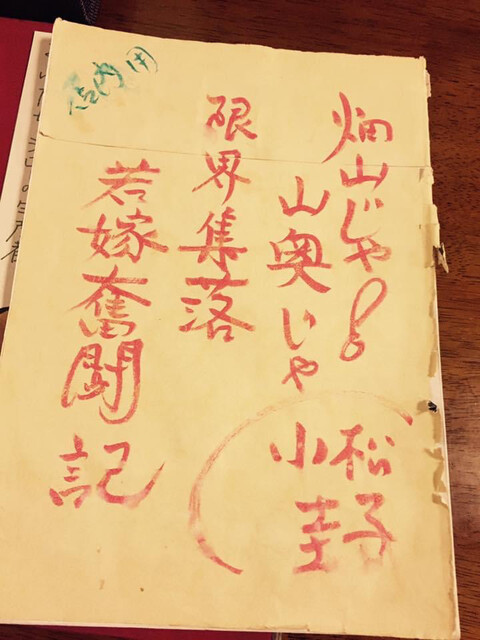 店内用
畑山じゃ!
山奥じゃ
小松
圭子
限界集落
若嫁奮闘記
の生産者